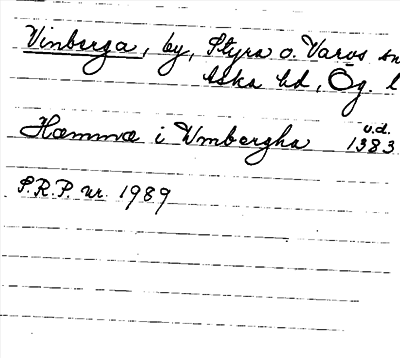 Vinberga, by, Styra o. Varvs sn
Aska hd, Ög. l
u.d.
Hæmmæ i Wmbergha 1383
S.R.P. nr. 1989